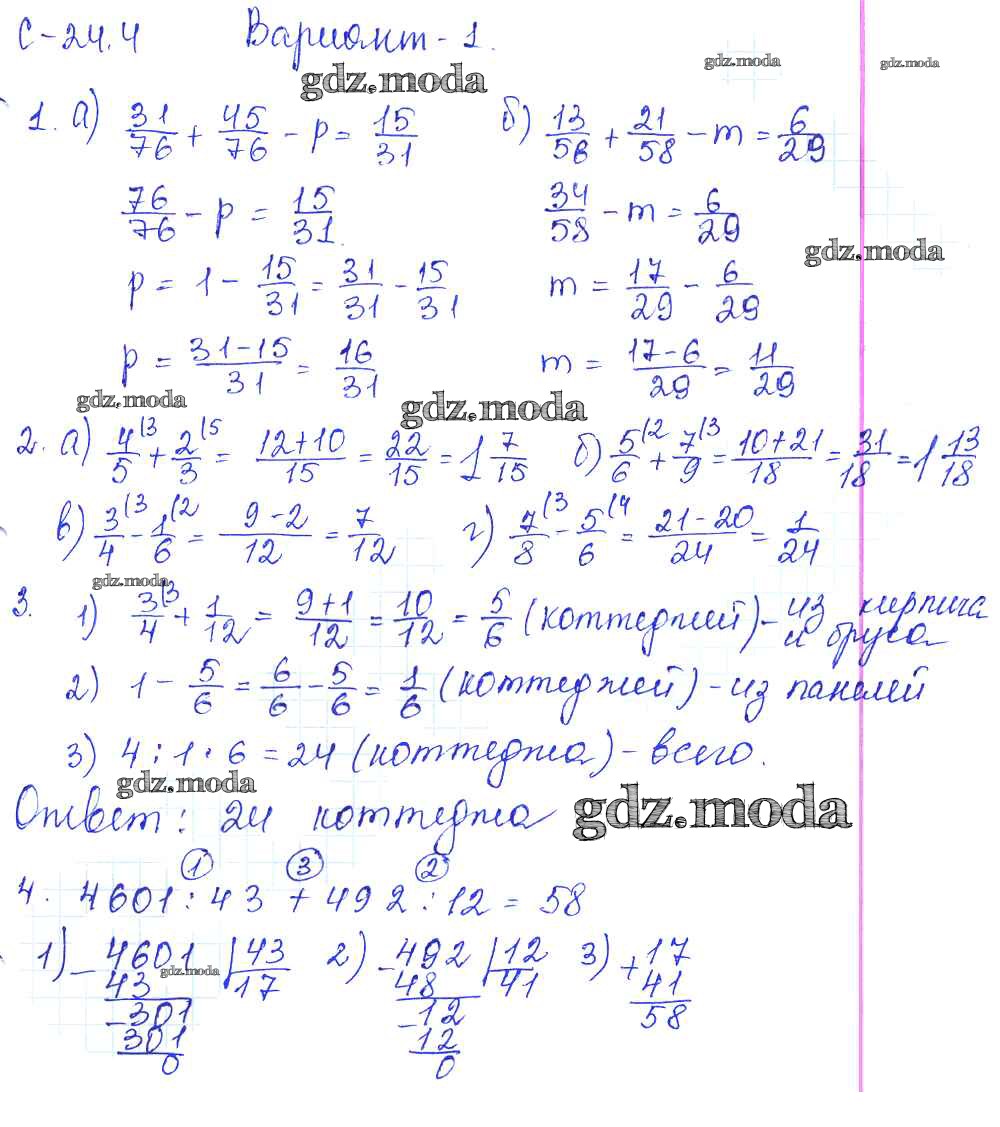 С-24.4 Вариант-1.
gdz.moda gdz.moda gdz.moda
1. а) 31/76 + 45/76 - p = 15/31 б) 13/58 + 21/58 - m = 6/29
76/76 - p = 15/31. 34/58 - m = 6/29
gdz.moda
p = 1 - 15/31 = 31/31 - 15/31 m = 17/29 - 6/29
p = 31-15/31 = 16/31 m = 17-6/29 = 11/29
gdz.moda gdz.moda
2. а) 4/5 (3 + 2/3 (5 = 12+10/15 = 22/15 = 1 7/15 б) 5/6 (2 + 7/9 (3 = 10+21/18 = 31/18 = 1 13/18
в) 3/4 (3 - 1/6 (2 = 9-2/12 = 7/12 г) 7/8 (3 - 5/6 (4 = 21-20/24 = 1/24
gdz.moda
3. 1) 3/4 (3 + 1/12 = 9+1/12 = 10/12 = 5/6 (коттеджей) - из кирпича
и бруса
2) 1 - 5/6 = 6/6 - 5/6 = 1/6 (коттеджей) - из панелей
3) 4 : 1 · 6 = 24 (коттеджа) - всего.
gdz.moda gdz.moda
Ответ: 24 коттеджа
1 3 2
4. 4601 : 43 + 492 : 12 = 58
1) - 4601 | 43 2) - 492 | 12 3) + 17
43 17 48 41 41
gdz.moda
- 301 - 12 58
301 12
0 0